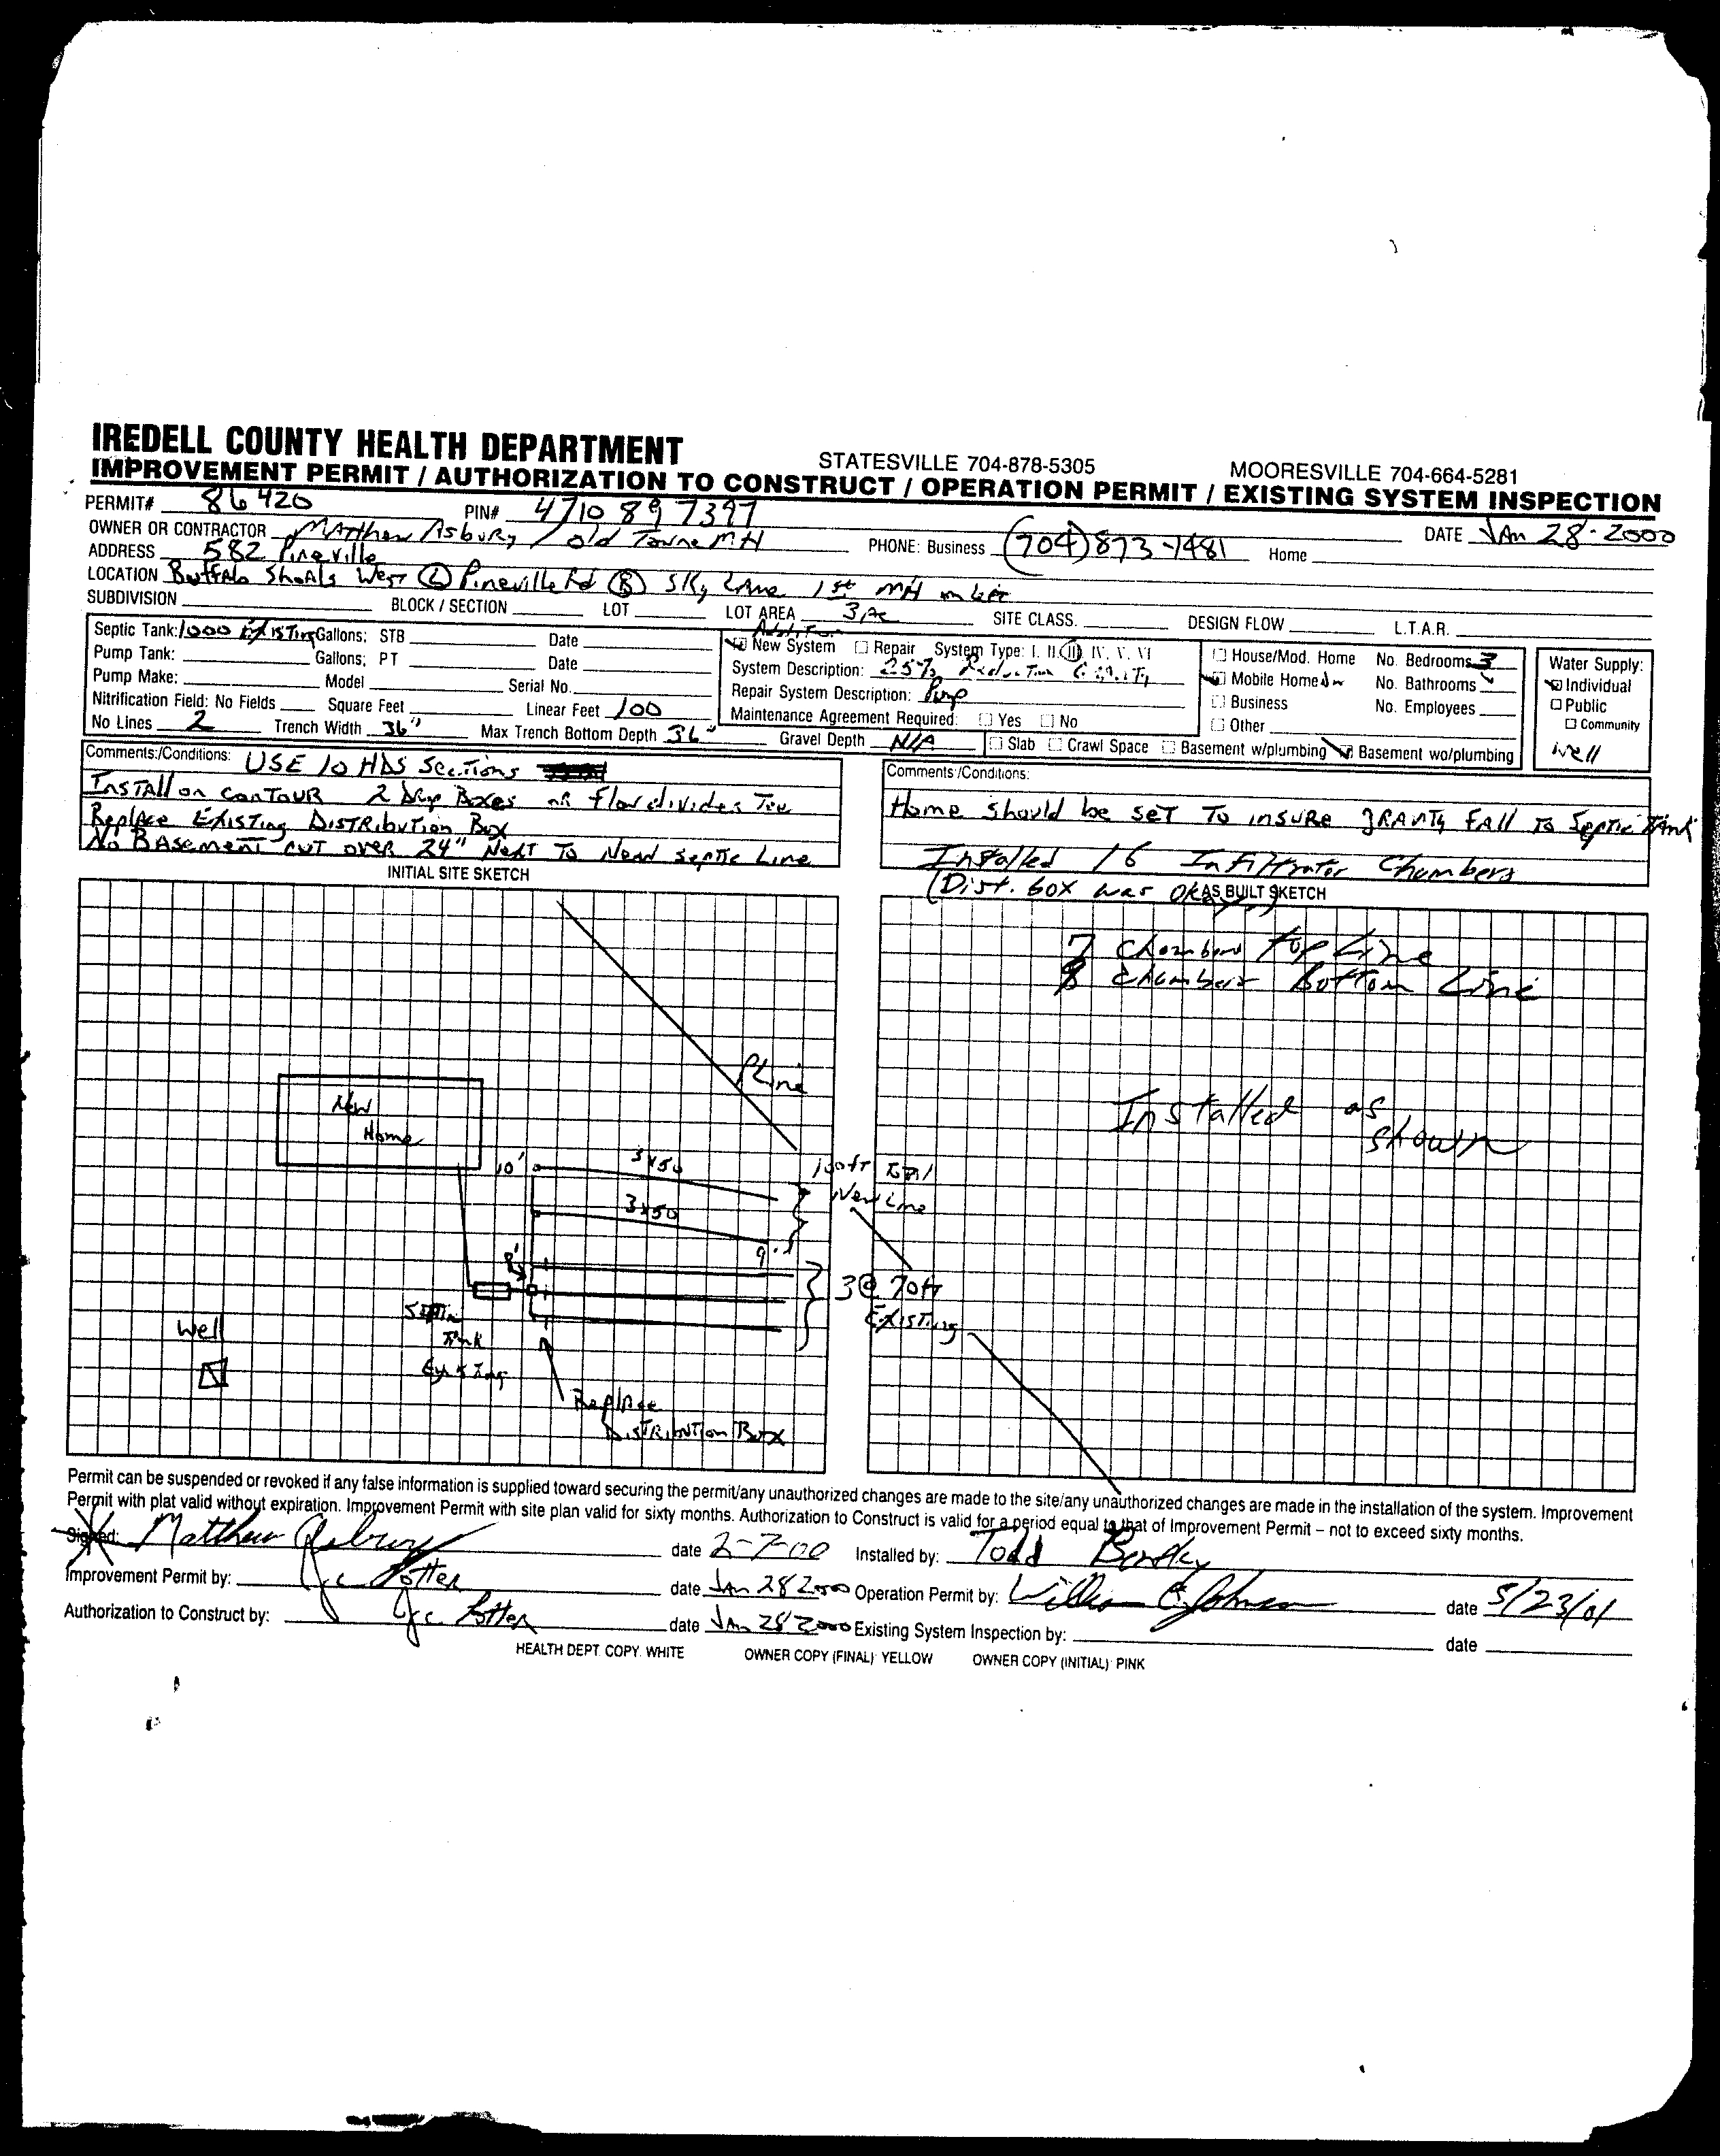 IREDELL COUNTY HEALTH DEPARTMENT
STATESVILLE 704-878-5305 MOORESVILLE 704-664-5281
IMPROVEMENT PERMIT / AUTHORIZATION TO CONSTRUCT / OPERATION PERMIT / EXISTING SYSTEM INSPECTION
PERMIT# 86420 PIN# 4710 89 7397 DATE JAn 28-2000
OWNER OR CONTRACTOR MAtthew Asbury / old Towne MH PHONE: Business (704) 873-1481 Home
ADDRESS 582 Pineville
LOCATION Buffalo Shoals West (L) Pineville Rd (R) Sky Lane 1st MH on left
SUBDIVISION BLOCK / SECTION LOT LOT AREA 3Ac SITE CLASS. DESIGN FLOW L.T.A.R.
Septic Tank: 1000 ExisTing Gallons; STB Date
Pump Tank: Gallons; PT Date
Pump Make: Model Serial No.
Nitrification Field: No Fields Square Feet Linear Feet 100
No Lines 2 Trench Width 36" Max Trench Bottom Depth 36" Gravel Depth N/A
Addition
New System Repair System Type: I, II, III, IV, V, VI
System Description: 25% Reduction Gravity
Repair System Description: Pump
Maintenance Agreement Required: Yes No
House/Mod. Home No. Bedrooms 3
Mobile Home No. Bathrooms
Business No. Employees
Other
Slab Crawl Space Basement w/plumbing Basement wo/plumbing
Water Supply:
Individual
Public
Community
well
Comments:/Conditions: USE 10 HDS Sections
Install on conTour 2 Drop Boxes or Flowdivider Tee
Replace Existing DISTRIbution Box
No BASement cut over 24" Next To New septic Line
Comments:/Conditions:
Home should be seT To insure gravity FAll To Septic Tank
Installed 16 Infiltrator Chambers
(Dist. box was okay)
INITIAL SITE SKETCH
AS BUILT SKETCH
7 Chambers Top Line
8 Chambers Bottom Line
PLine
New
Home
Installed as
shown
10' 3x50 100ft Total
New Line
3x50
9'
8'
3@ 70ft
Existing
Septic
Tank
Existing
Well
Replace
DISTRIbuTion Box
Permit can be suspended or revoked if any false information is supplied toward securing the permit/any unauthorized changes are made to the site/any unauthorized changes are made in the installation of the system. Improvement
Permit with plat valid without expiration. Improvement Permit with site plan valid for sixty months. Authorization to Construct is valid for a period equal to that of Improvement Permit – not to exceed sixty months.
Signed: Matthew Asbury date 2-7-00 Installed by: Todd
Improvement Permit by: Potter date JAn 28 2000 Operation Permit by: William C Johnson date 5/23/01
Authorization to Construct by: Potter date JAn 28 2000 Existing System Inspection by: date
HEALTH DEPT. COPY: WHITE OWNER COPY (FINAL): YELLOW OWNER COPY (INITIAL): PINK